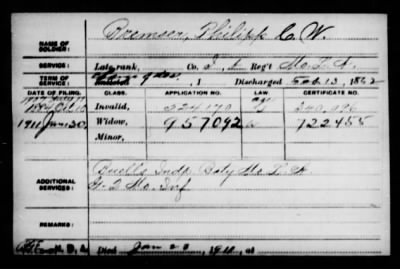 NAME OF SOLDIER: Bremser, Philipp C. W.
SERVICE: Late rank, Co. I, 1 Reg't Mo. L. A.
TERM OF SERVICE: , 1 Discharged Feb 13, 1862
DATE OF FILING. CLASS. APPLICATION NO. LAW. CERTIFICATE NO.
1884 Oct 10 Invalid, 524170 240,096
1911 Jan 30, Widow, 957092 722455
Minor,
ADDITIONAL SERVICES: Buell's Indp Baty Mo L. A.
G. 2 Mo. Inf
REMARKS:
Died Jan 23, 1911, at